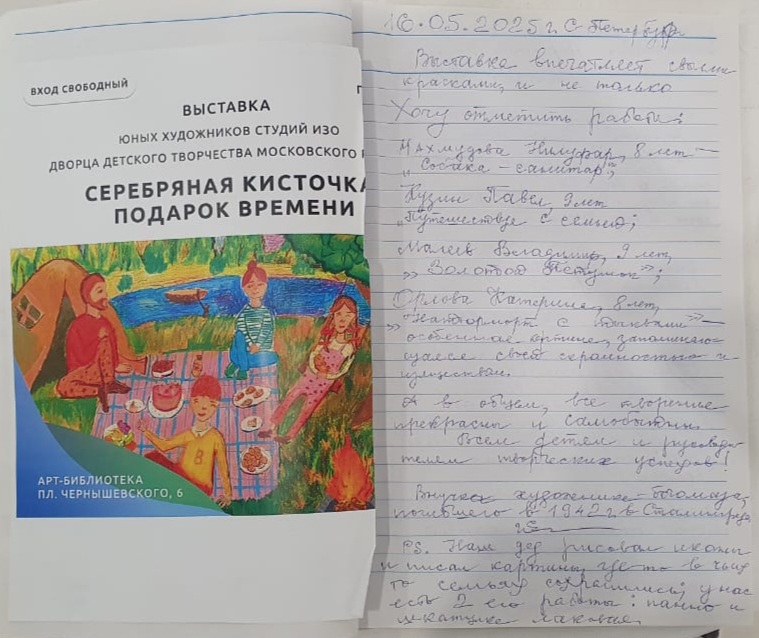 ВХОД СВОБОДНЫЙ
ВЫСТАВКА
ЮНЫХ ХУДОЖНИКОВ СТУДИЙ ИЗО
ДВОРЦА ДЕТСКОГО ТВОРЧЕСТВА МОСКОВСКОГО
СЕРЕБРЯНАЯ КИСТОЧКА
ПОДАРОК ВРЕМЕНИ
В
АРТ-БИБЛИОТЕКА
ПЛ. ЧЕРНЫШЕВСКОГО, 6
16.05.2025 г. С-Петербург
Выставка впечатляет своими
красками, и не только
Хочу отметить работы:
Нилуфар, 8 лет –
„Собака – санитар";
Кузин Павел, 9 лет
„Путешествие с семьей;
Владимир, 9 лет,
„Золотой Петушок";
Орлова Катерина, 8 лет,
„Натюрморт с тыквами" –
особенная картина, запоминаю-
щаяся своей скромностью и
изяществом.
А в общем, все творения
прекрасны и самобытны.
Всем детям и руководи-
телям творческих успехов!
Внучка художника-богомаза,
погибшего в 1942 г. в Сталинграде
PS. Наш дед рисовал иконы
и писал картины, где-то в чьих-
то семьях сохранились, у нас
есть 2 его работы: панно и
шкатулка лаковая.